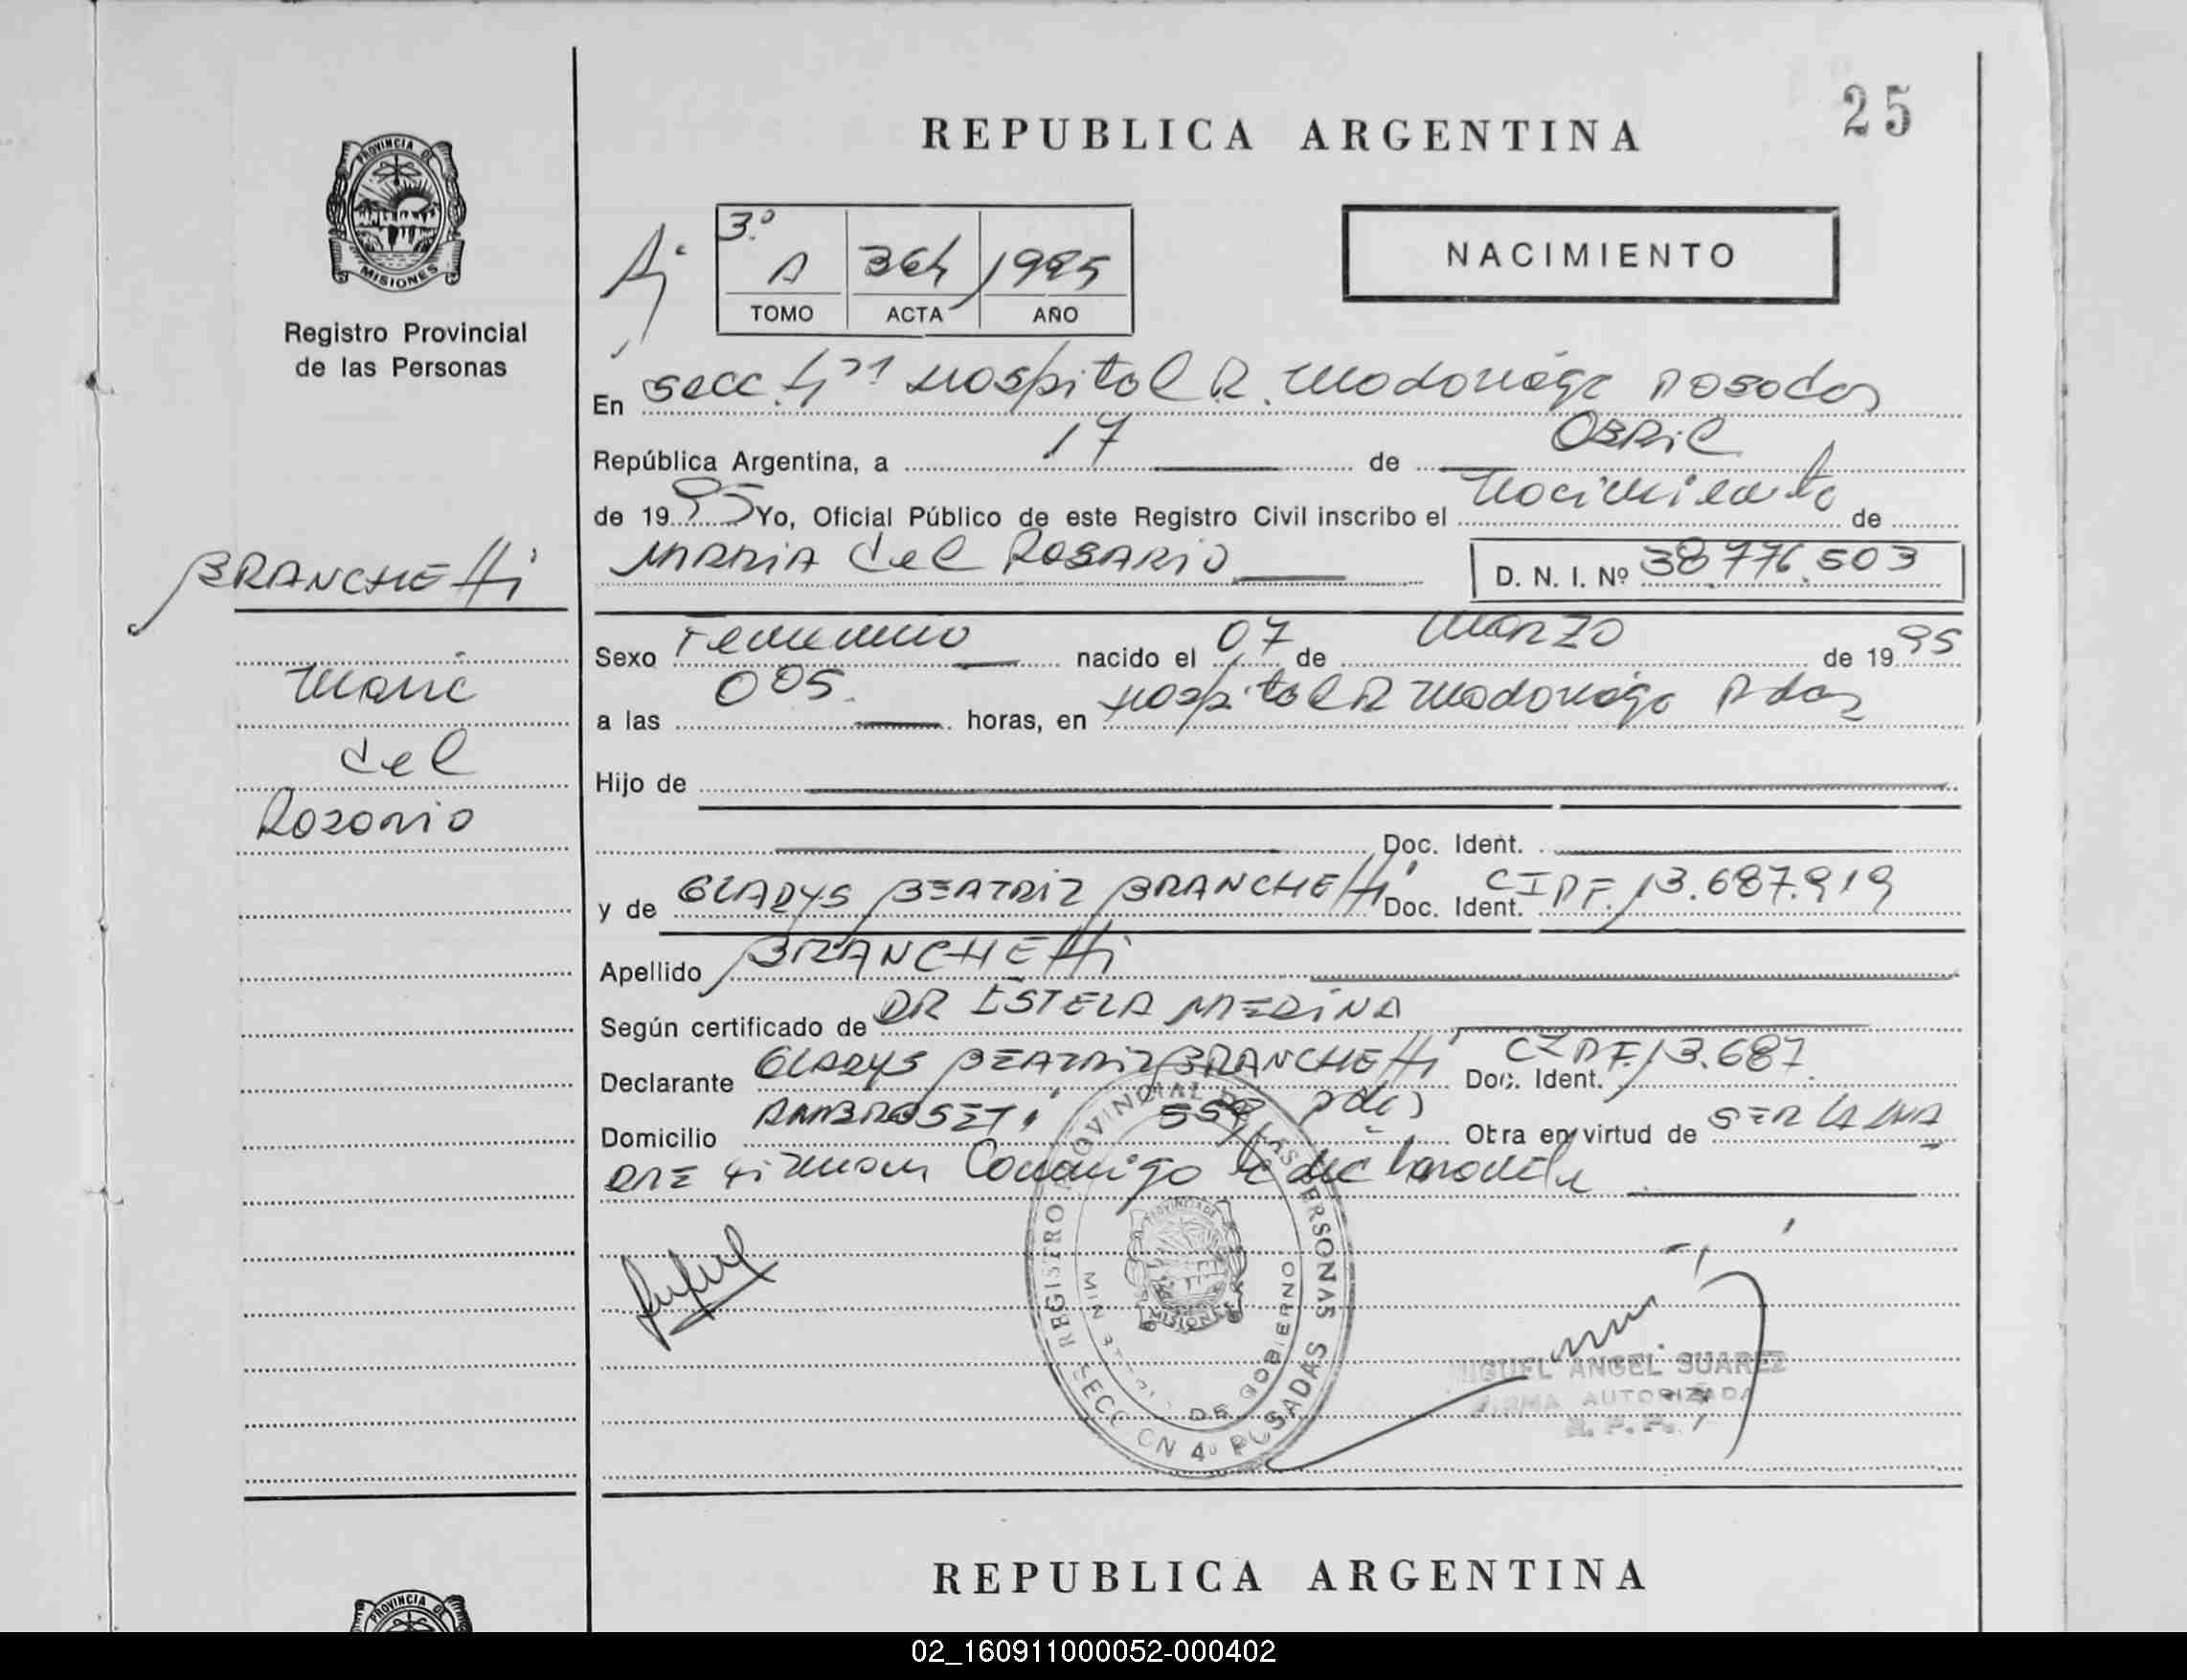 25
REPUBLICA ARGENTINA
PROVINCIA DE
MISIONES
Registro Provincial
de las Personas
3º
A 364 1995
TOMO ACTA AÑO
NACIMIENTO
En Secc. 4ta Hospital R. Madariaga Posadas
República Argentina, a 17 de ABRil
de 1995 Yo, Oficial Público de este Registro Civil inscribo el nacimiento de
MARIA del ROSARIO D. N. I. Nº 38.776.503
BRANCHEtti
Maria
del
Rosario
Sexo Femenino nacido el 07 de Marzo de 1995
a las 005. horas, en Hospital R Madariaga Pdas
Hijo de
Doc. Ident.
y de GLADYS BEATRIZ BRANCHEtti Doc. Ident. CIPF. 13.687.919
Apellido BRANCHEtti
Según certificado de DR ESTELA MEDINA
Declarante GLADYS BEATRIZ BRANCHEtti Doc. Ident. CIPF. 13.687
Domicilio AMBROSETi Pdas Obra en virtud de SER LA MA
DRE firman Conmigo la declarante
REGISTRO PROVINCIAL DE LAS PERSONAS
DE GOBIERNO
PROVINCIA DE
MISIONES
SECCION 4º POSADAS
MIGUEL ANGEL SUAREZ
FIRMA AUTORIZADA
R. P. P.
REPUBLICA ARGENTINA
PROVINCIA DE
02_160911000052-000402